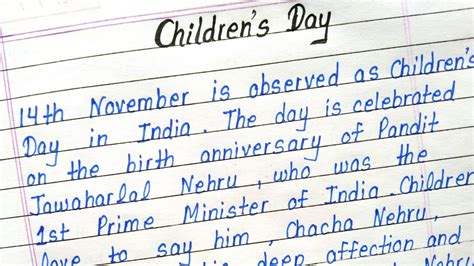 Children's Day
14th November is observed as Children's
Day in India. The day is celebrated
on the birth anniversary of Pandit
Jawaharlal Nehru, who was the
1st Prime Minister of India. Children
love to say him, Chacha Nehru,
deep affection and
Nehru